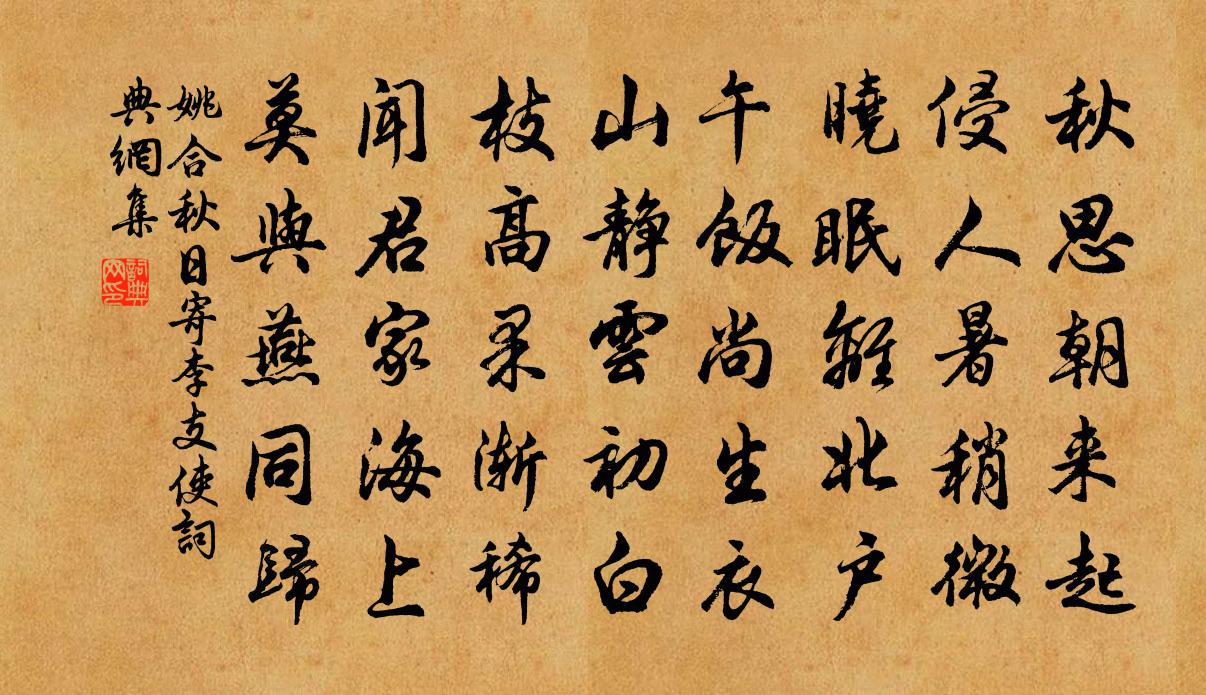 秋思朝来起
侵人暑稍微
曉眠離北户
午飯尚生衣
山静雲初白
枝高果漸稀
聞君家海上
莫與燕同歸
姚合秋日寄李支使詞
典網集
詞典
网印